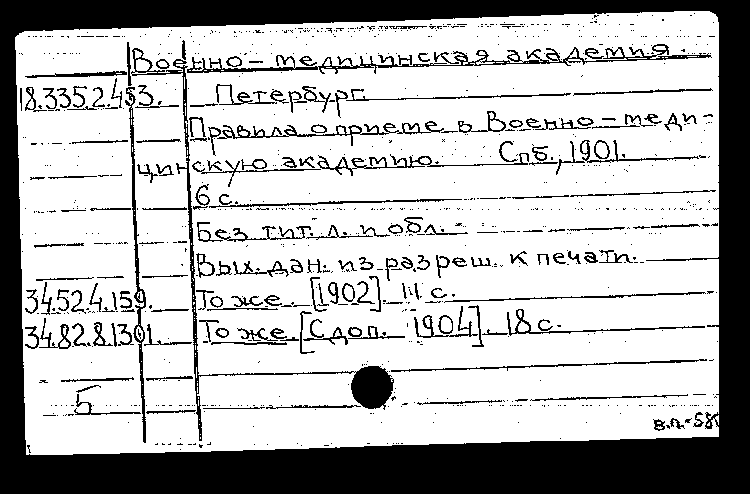 Военно-медицинская академия.
18.335.2.453. Петербург.
Правила о приеме в Военно-меди-
цинскую академию. Спб., 1901.
6 с.
Без тит. л. и обл.
Вых. дан. из разреш. к печати.
34.52.4.159. То же. [1902]. 14 с.
34.82.8.1301. То же. [С доп. 1904]. 18 с.
5